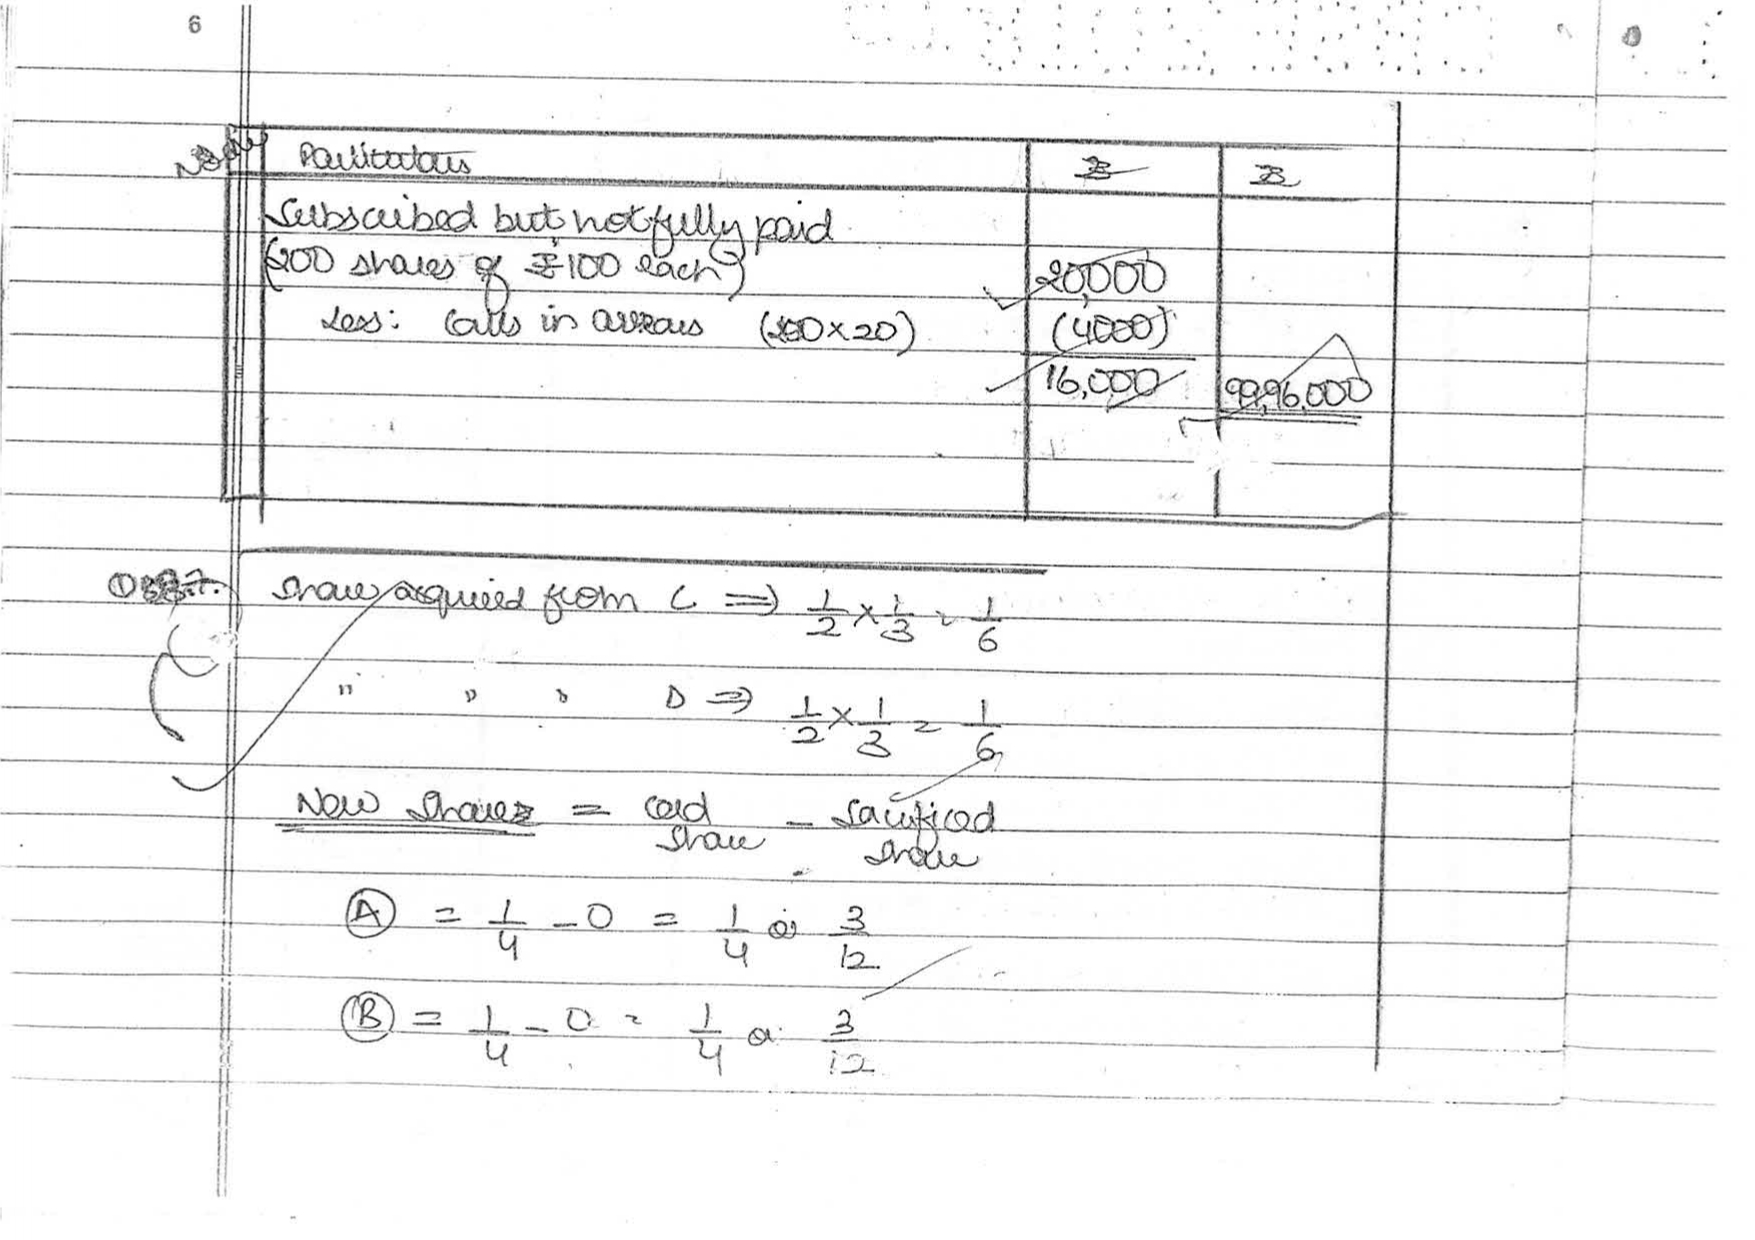 6
Particulars ₹ ₹
Subscribed but not fully paid
(200 shares of ₹100 each) 20,000
Less: Calls in arrears (200×20) (4000)
16,000 99,96,000
Share acquired from C ⇒ 1/2 × 1/3 = 1/6
" " " D ⇒ 1/2 × 1/3 = 1/6
New Share = old share - sacrificed share
(A) = 1/4 - 0 = 1/4 or 3/12
(B) = 1/4 - 0 = 1/4 or 3/12